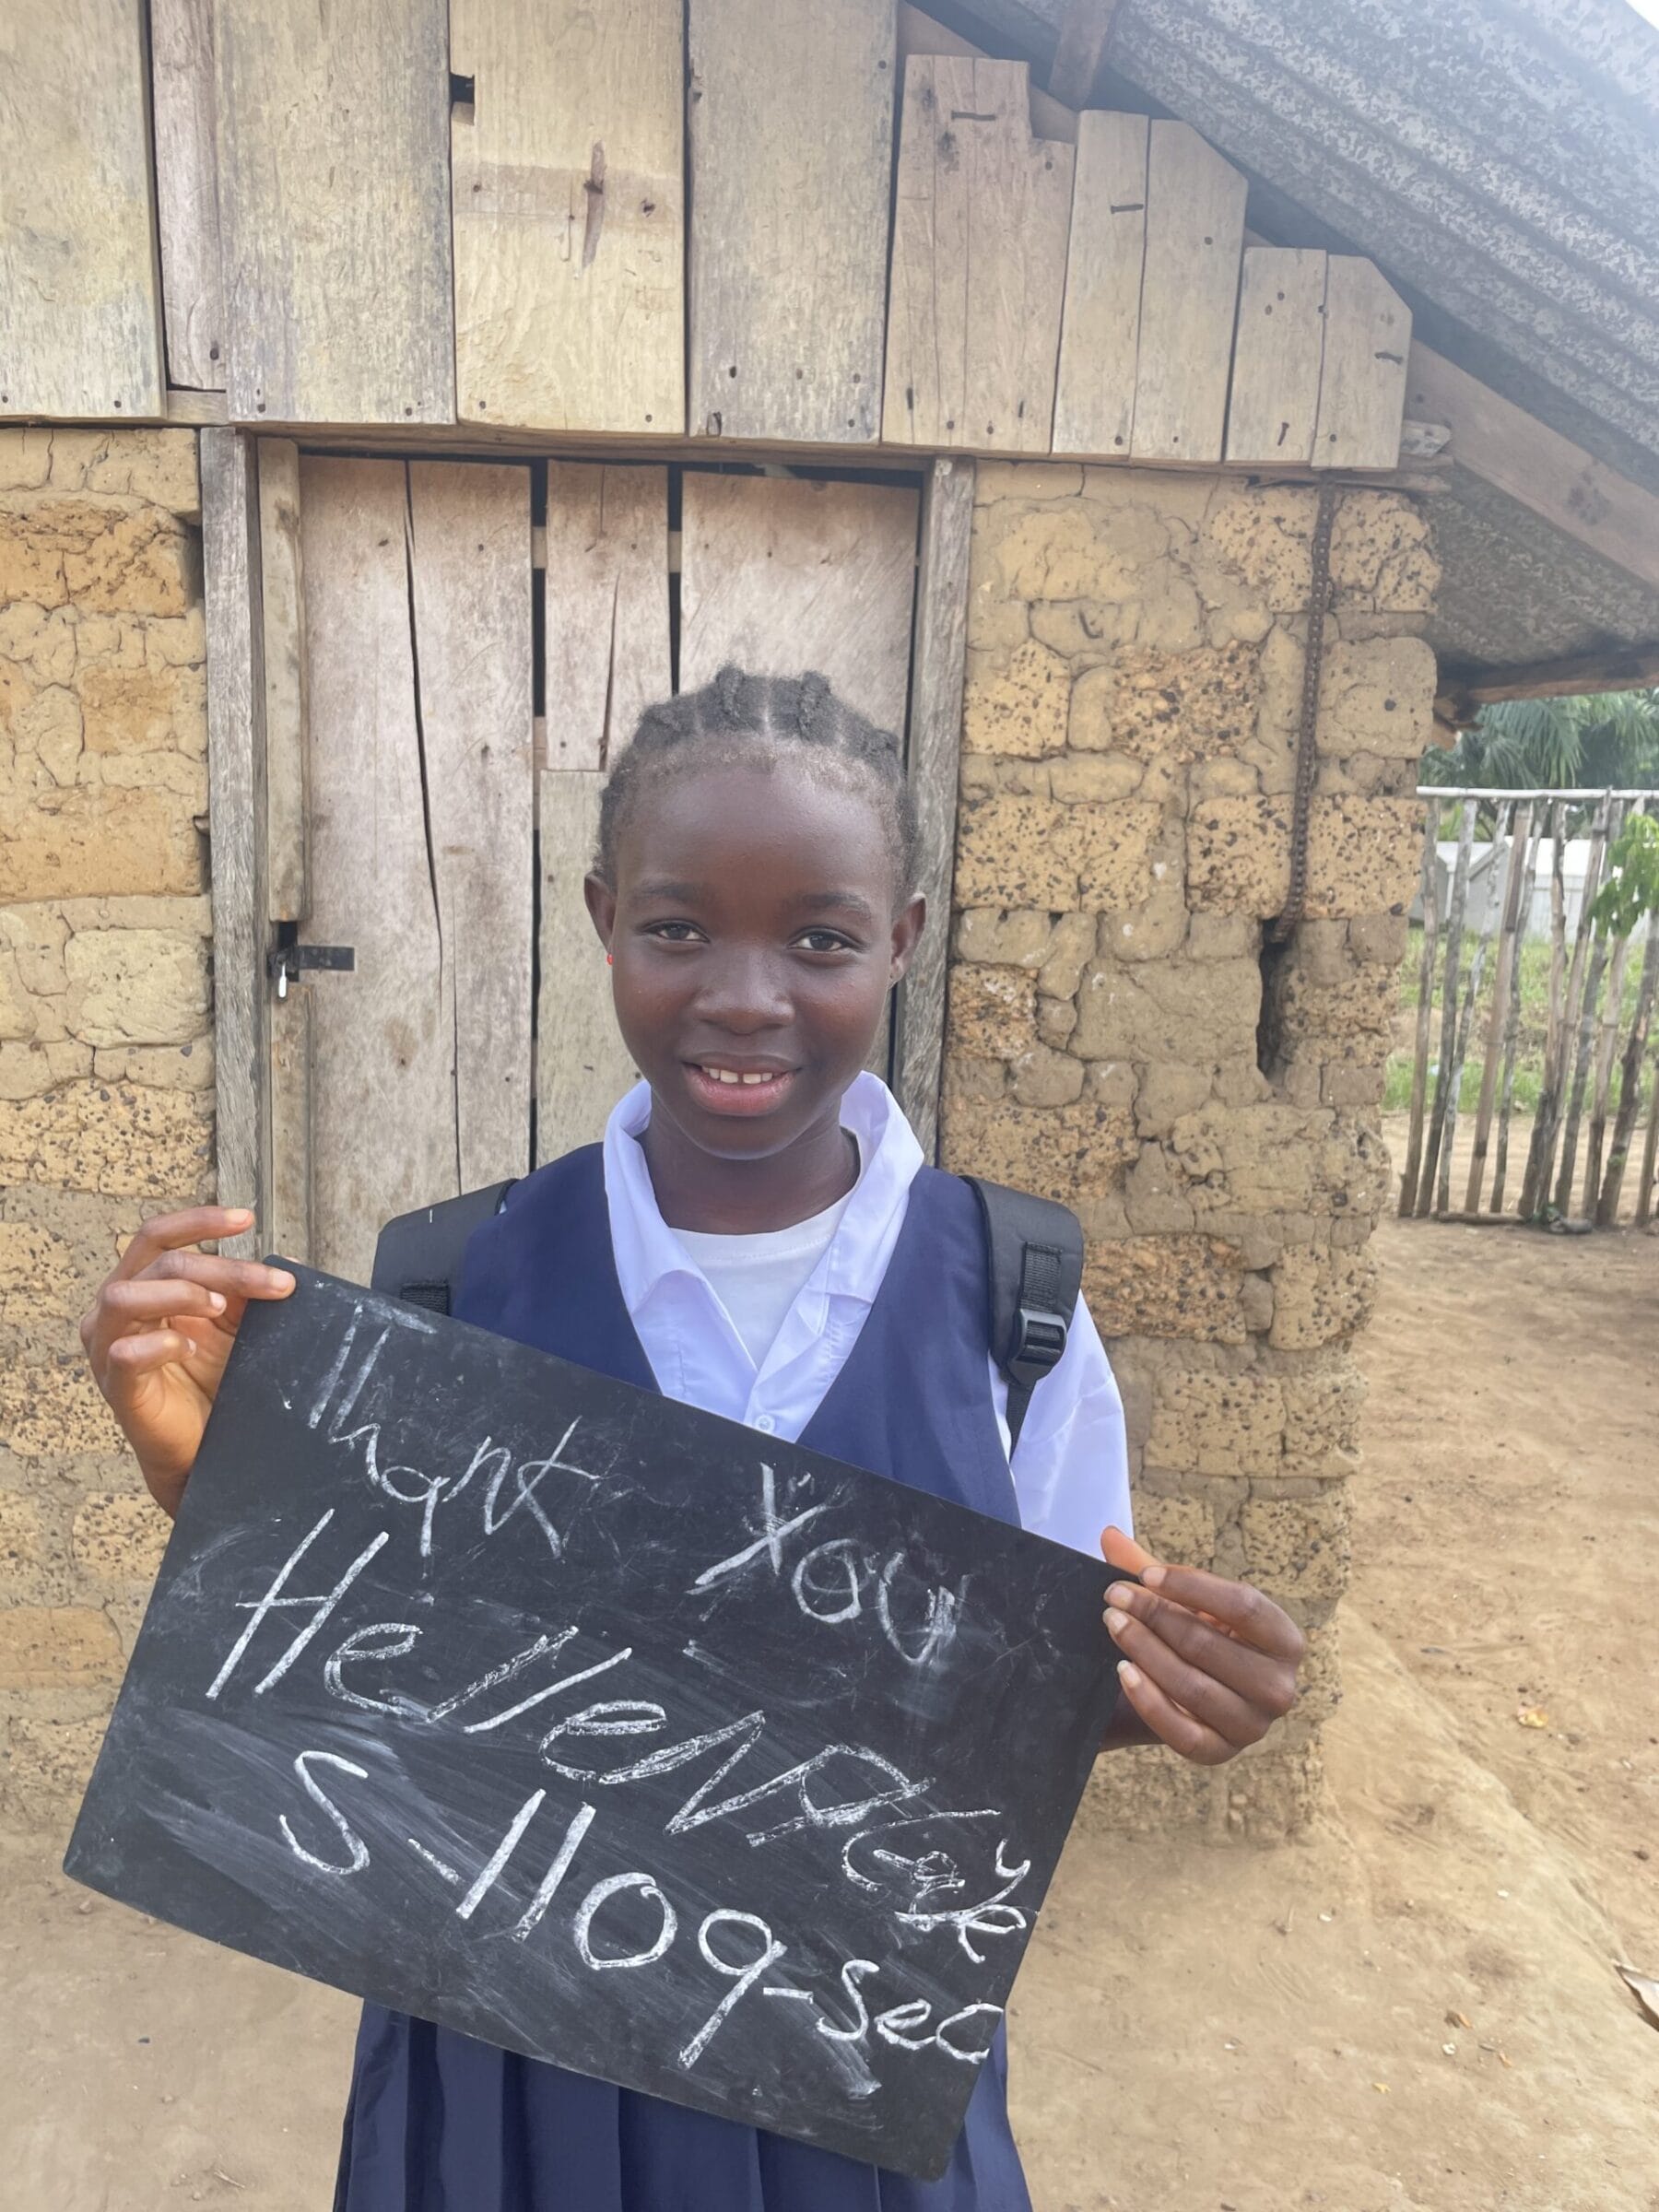 Thank You
Hellen
S-1109-Sec